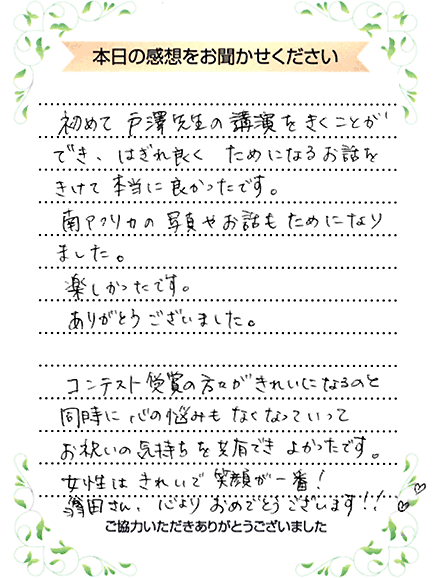 本日の感想をお聞かせください
初めて戸澤先生の講演をきくことが
でき、はぎれ良く ためになるお話を
きけて本当に良かったです。
南アフリカの写真やお話もためになり
ました。
楽しかったです。
ありがとうございました。
コンテスト受賞の方々がきれいになるのと
同時に心の悩みもなくなっていって
お祝いの気持ちを共有でき よかったです。
女性はきれいで笑顔が一番!
翁田さん、心よりおめでとうございます!!
ご協力いただきありがとうございました